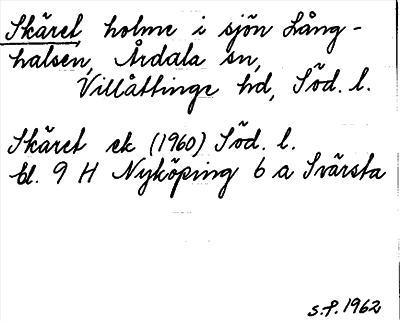 Skäret, holme i sjön Lång-
halsen, Årdala sn,
Villåttinge hd, Söd. l.
Skäret ek (1960) Söd. l.
bl. 9 H Nyköping 6 a Svärsta
S.P. 1962